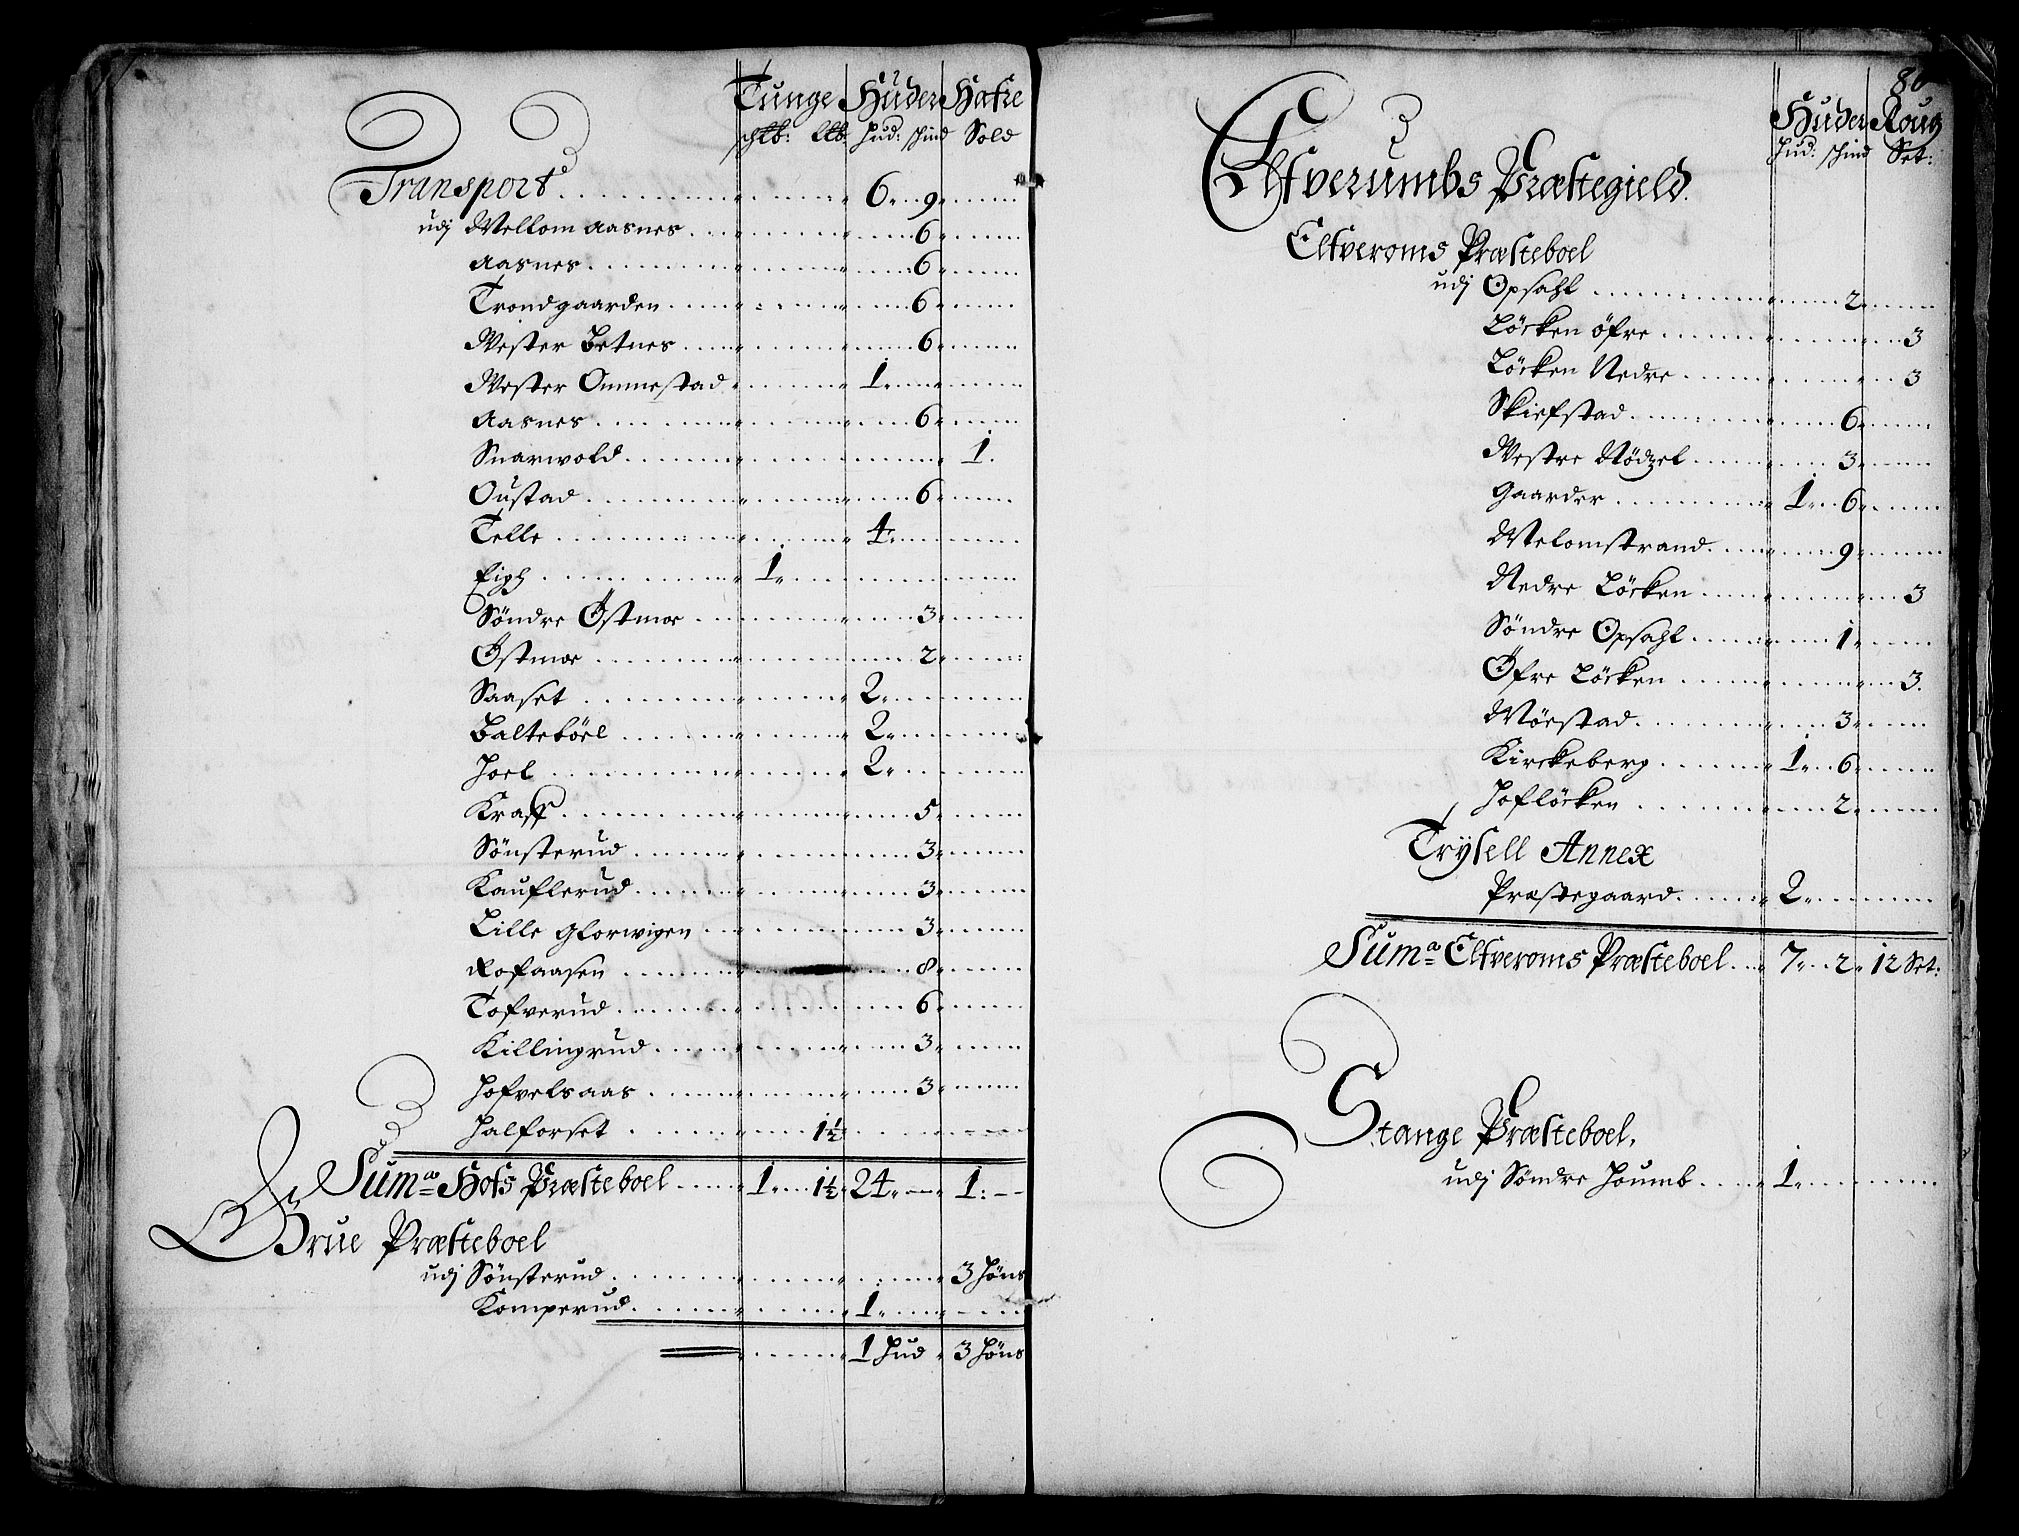 Tunge Huder Hafre
Hud: skind Sold
Transport 6 9
udj Mellom Aasnes 6
Aasnes 6
Trondgaarden 6
Wester Betnes 6
Wester Ommestad 1
Aasnes 6
Snarwold 1
Oustad 6
Telle 4
Eigh 1
Söndre Östmoe 3
Östmoe 2
Saaset 2
Balteböel 2
Hoel 2
Kraff 5
Sönsterud 3
Kauflerud 3
Lille Glorwigen 3
Rofaasen 8
Tofverud 6
Killingrud 3
Hofvelsaas 3
Halforset 1½
Suma Hofs Præsteboel 1 1½ 24 1
Grue Præsteboel
udj Sönsterud 3 Höns
Komperud 1
1 Hud 3 Höns
80
Huder Roug
Hud: skind Set:
Elfverumbs Præstegield.
Elfveroms Præsteboel
udj Opsahl 2
Löcken öfre 3
Löcken Nedre 3
Skiefstad 6
Westre Nödzel 3
Gaarder 1 6
Melomstrand 9
Nedre Löcken 3
Söndre Opsahl 1
Öfre Löcken 3
Mörstad 3
Kirckeberg 1 6
Hoflöcken 2
Trysell Annex
Præstegaard 2
Suma Elfveroms Præsteboel 7 2 12 Set:
Stange Præsteboel,
udj Söndre Houmb 1